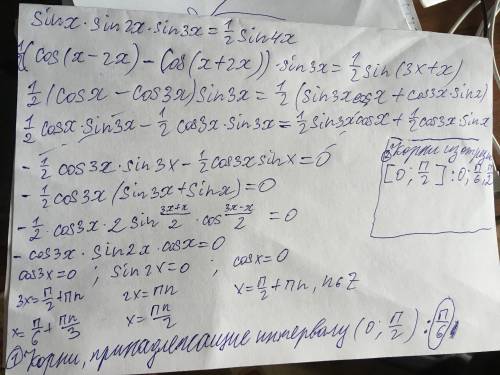 sinx · sin2x · sin3x = 1/2 sin4x
1/2(cos(x-2x) - cos(x+2x)) · sin3x = 1/2 sin(3x+x)
1/2 (cosx - cos3x) sin3x = 1/2 (sin3x cosx + cos3x sinx)
1/2 cosx · sin3x - 1/2 cos3x · sin3x = 1/2 sin3x cosx + 1/2 cos3x sinx
- 1/2 cos3x · sin3x - 1/2 cos3x sinx = 0
- 1/2 cos3x (sin3x + sinx) = 0
- 1/2 · cos3x · 2 sin (3x+x)/2 · cos (3x-x)/2 = 0
- cos3x · sin2x · cosx = 0
cos3x = 0 ; sin2x = 0 ; cosx = 0
3x = π/2 + πn 2x = πn x = π/2 + πn, n∈Z
x = π/6 + πn/3 x = πn/2
① Корни, принадлежащие интервалу (0; π/2) : π/6
② Корни из отрезка
[0; π/2] : 0; π/6; π/2